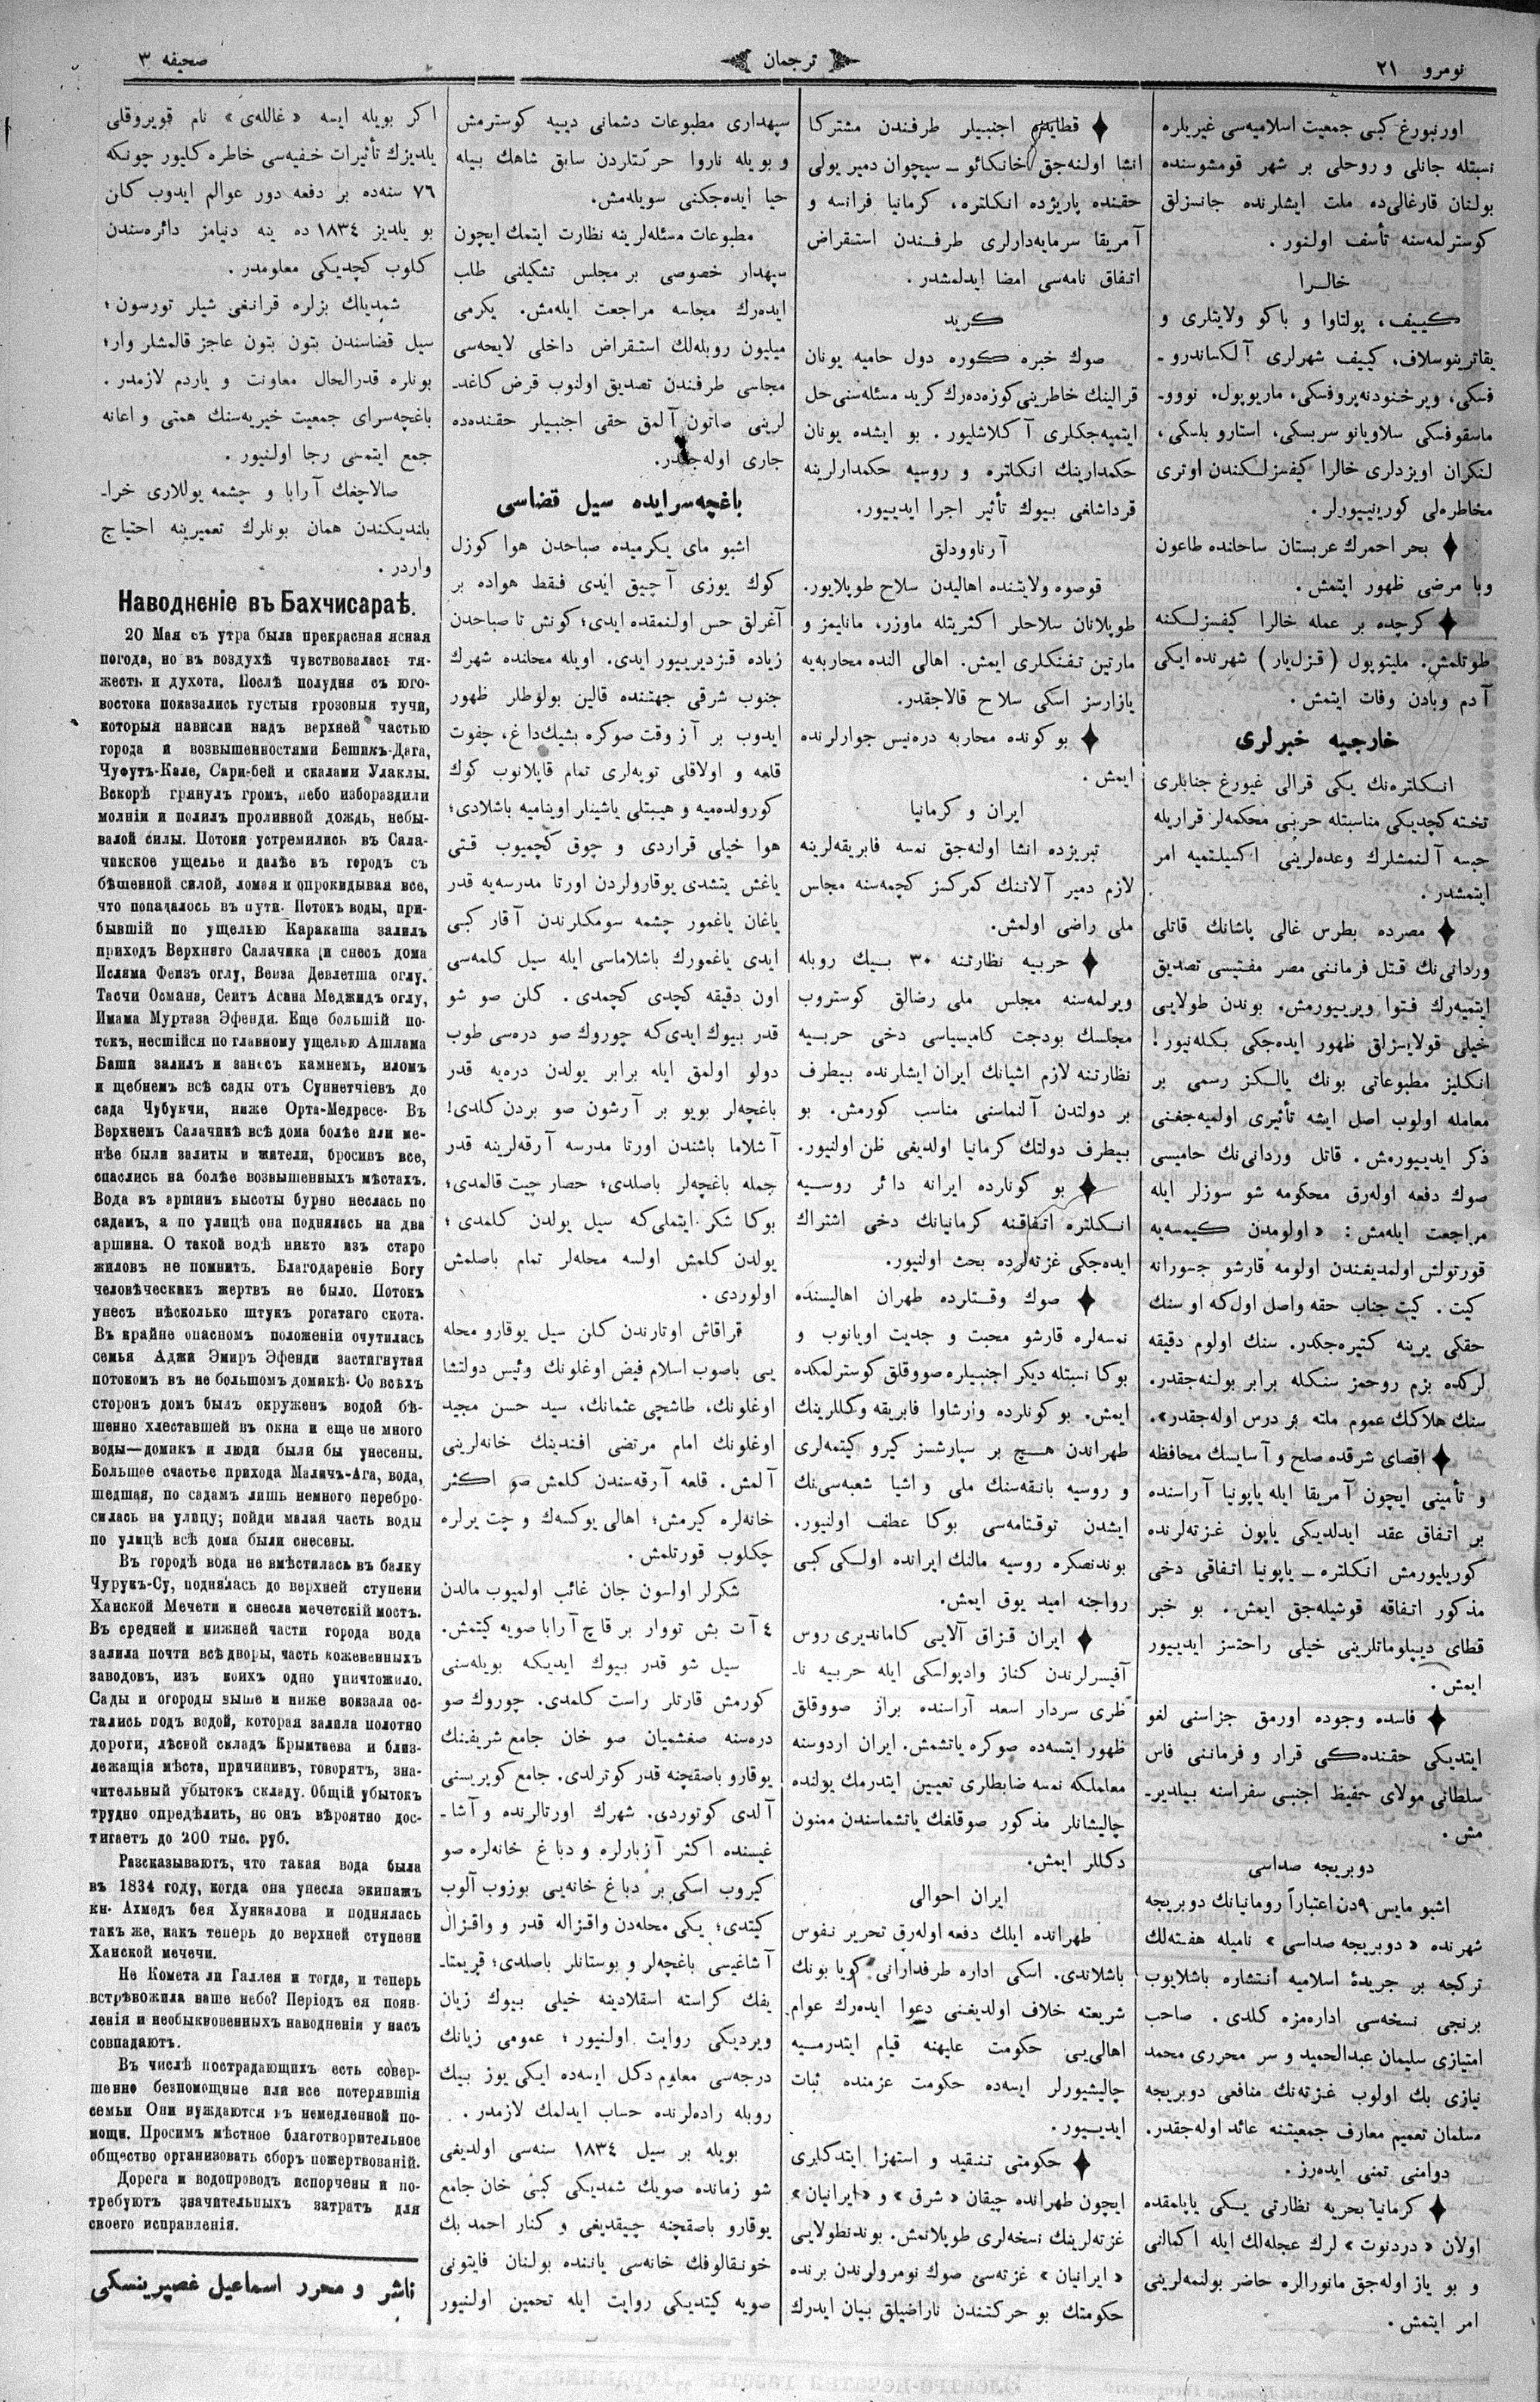 نومرو ٢١
ترجمان
صحیفه ٣
اورنبورغ کبی جمعیت اسلامیه‌سی غیریلره
نسبتله جانلی و روحلی بر شهر قومشوسنده
بولنان قارغالی‌ده ملت ایشلرنده جانسزلق
کوسترلمه‌سنه تأسف اولنور .
خالرا
کییف، پولتاوا و باکو ولایتلری و
یقاترینوسلاف، کییف شهرلری آلکساندرو-
فسکی، ویرخنودنه‌پروفسکی، ماریوپول، نووو-
ماسقوفسکی سلاویانو سربسکی، استارو بلسکی،
لنکران اویزدلری خالرا کیفسزلکندن اوتری
مخاطره‌لی کورینییورلر .
بحر احمرك عربستان ساحلنده طاعون
وبا مرضی ظهور ایتمش.
کرچده بر عمله خالرا کیفسزلکنه
طوتلمش. ملیتوپول (قزل‌یار) شهرنده ایکی
آدم وبادن وفات ایتمش .
خارجیه خبرلری
انکلتره‌نك یکی قرالی غیورغ جنابلری
تخته کچدیکی مناسبتله حربی محکمه‌لر قراریله
حبسه آلنمشلرك وعده‌لرینی اکسیلتمیه امر
ایتمشدر .
مصرده بطرس غالی پاشانك قاتلی
وردانی‌نك قتل فرماننی مصر مفتیسی تصدیق
ایتمیه‌رك فتوا ویرییورمش. بوندن طولایی
خیلی قولایسزلق ظهور ایده‌جکی بکله‌نیور!
انکلیز مطبوعاتی بونك یالکز رسمی بر
معامله اولوب اصل ایشه تأثیری اولمیه‌جغنی
ذکر ایدییورمش . قاتل وردانی‌نك حامیسی
صوك دفعه اوله‌رق محکومه شو سوزلر ایله
مراجعت ایله‌مش : « اولومدن کیمسه‌یه
قورتولش اولمدیغندن اولومه قارشو جسورانه
کیت . کیت جناب حقه واصل اول که او سنك
حقکی یرینه کتیره‌جکدر. سنك اولوم دقیقه
لرکده بزم روحمز سنکله برابر بولنه‌جقدر.
سنك هلاکك عموم ملته بر درس اوله‌جقدر».
اقصای شرقده صلح و آسایسك محافظه
و تأمینی ایچون آمریقا ایله یاپونیا آراسنده
بر اتفاق عقد ایدلدیکی یاپون غزته‌لرنده
کوریلیورمش انکلتره – یاپونیا اتفاقی دخی
مذکور اتفاقه قوشیله‌جق ایمش. بو خبر
قطای دیپلوماتلرینی خیلی راحتسز ایدییور
ایمش .
فاسده وجوده اورمق جزاسنی لغو
ایتدیکی حقنده‌کی قرار و فرماننی فاس
سلطانی مولای حفیظ اجنبی سفراسنه بیلدیر-
مش .
دوبریجه صداسی
اشبو مایس ٩دن اعتباراً رومانیانك دوبریجه
شهرنده « دوبریجه صداسی » نامیله هفته‌لك
ترکجه بر جریدهٔ اسلامیه انتشاره باشلایوب
برنجی نسخه‌سی اداره‌مزه کلدی . صاحب
امتیازی سلیمان عبدالحمید و سر محرری محمد
نیازی بك اولوب غزته‌نك منافعی دوبریجه
مسلمان تعمیم معارف جمعیتنه عائد اوله‌جقدر.
دوامنی تمنی ایده‌رز .
کرمانیا بحریه نظارتی یکی یاپلمقده
اولان « دردنوت » لرك عجله‌لك ایله اکمالنی
و بو یاز اوله‌جق مانورالره حاضر بولنمه‌لرینی
امر ایتمش .
قطایده اجنبیلر طرفندن مشترکا
انشا اولنه‌جق خانکائو – سیچوان دمیر یولی
حقنده پاریژده انکلتره، کرمانیا فرانسه و
آمریقا سرمایه‌دارلری طرفندن استقراض
اتفاق نامه‌سی امضا ایدلمشدر .
کرید
صوك خبره کوره دول حامیه یونان
قرالینك خاطرینی کوزه‌ده‌رك کرید مسئله‌سنی حل
ایتمیه‌جکلری آکلاشلیور . بو ایشده یونان
حکمدارینك انکلتره و روسیه حکمدارلرینه
قرداشلغی بیوك تأثیر اجرا ایدییور.
آرناوودلق
قوصوه ولایتنده اهالیدن سلاح طوپلایور.
طوپلانان سلاحلر اکثریتله ماوزر، مانلیمز و
مارتین تفنکلری ایمش. اهالی النده محاربه‌یه
یازارسز اسکی سلاح قالاجقدر.
بو کونده محاربه دره‌نیس جوارلرنده
ایمش .
ایران و کرمانیا
تبریزده انشا اولنه‌جق نمسه فابریقه‌لرینه
لازم دمیر آلاتنك کمرکسز کچمه‌سنه مجلس
ملی راضی اولمش.
حربیه نظارتنه ٣٠ بیك روبله
ویرلمه‌سنه مجلس ملی رضالق کوستروب
مجلسك بودجت کامیسیاسی دخی حربیه
نظارتنه لازم اشیانك ایران ایشلرنده بیطرف
بر دولتدن آلنماسنی مناسب کورمش. بو
بیطرف دولتك کرمانیا اولدیغی ظن اولنیور.
بو کونلرده ایرانه دائر روسیه
انکلتره اتفاقنه کرمانیانك دخی اشتراك
ایده‌جکی غزته‌لرده بحث اولنیور.
صوك وقتلرده طهران اهالیسنده
نمسه‌لره قارشو محبت و جدیت اویانوب و
بوکا نسبتله دیکر اجنبیلره صووقلق کوسترلمکده
ایمش. بو کونلرده وارشاوا فابریقه وکللرینك
طهراندن هیچ بر سپارشسز کیرو کیتمه‌لری
و روسیه بانقه‌سنك ملی و اشیا شعبه‌سی‌نك
ایشدن توقتامه‌سی بوکا عطف اولنیور.
بوندنصکره روسیه مالنك ایرانده اولکی کبی
رواجنه امید یوق ایمش.
ایران قزاق آلایی کاماندیری روس
آفیسرلرندن کناز وادبولسکی ایله حربیه نا-
ظری سردار اسعد آراسنده براز صووقلق
ظهور ایتسه‌ده صوکره یاتشمش. ایران اردوسنه
معاملکه نمسه ضابطلری تعیین ایتدرمك یولنده
چالیشانلر مذکور صوقلغك یاتشماسندن ممنون
دکللر ایمش.
ایران احوالی
طهرانده ایلك دفعه اوله‌رق تحریر نفوس
باشلاندی. اسکی اداره طرفدارانی کویا بونك
شریعته خلاف اولدیغنی دعوا ایده‌رك عوام
اهالی‌یی حکومت علیهنه قیام ایتدرمیه
چالیشیورلر ایسه‌ده حکومت عزمنده ثبات
ایدییور.
حکومتی تنقید و استهزا ایتدکلری
ایچون طهرانده چیقان « شرق » و « ایرانیان »
غزته‌لرینك نسخه‌لری طوپلانمش. بوندنطولایی
« ایرانیان » غزته‌سی صوك نومرولرندن برنده
حکومتك بو حرکتندن ناراضیلق بیان ایدرك
سپهداری مطبوعات دشمانی دییه کوسترمش
و بویله ناروا حرکتلردن سابق شاهك بیله
حیا ایده‌جکنی سویله‌مش.
مطبوعات مسئله‌لرینه نظارت ایتمك ایچون
سپهدار خصوصی بر مجلس تشکیلنی طلب
ایده‌رك مجلسه مراجعت ایله‌مش. یکرمی
میلیون روبله‌لك استقراض داخلی لایحه‌سی
مجلسی طرفندن تصدیق اولنوب قرض کاغد-
لرینی صاتون آلمق حقی اجنبیلر حقنده‌ده
جاری اوله‌جقدر.
باغچه‌سرایده سیل قضاسی
اشبو مای یکرمیده صباحدن هوا کوزل
کوك یوزی آچیق ایدی فقط هواده بر
آغرلق حس اولنمقده ایدی؛ کونش تا صباحدن
زیاده قزدیرییور ایدی. اویله محلنده شهرك
جنوب شرقی جهتنده قالین بولوطلر ظهور
ایدوب بر آز وقت صوکره بشیك‌داغ، چفوت
قلعه و اولاقلی توپه‌لری تمام قاپلانوب کوك
کورولده‌میه و هیبتلی یاشینلر اوینامیه باشلادی؛
هوا خیلی قراردی و چوق کچمیوب قتی
یاغش یتشدی یوقارولردن اورتا مدرسه‌یه قدر
یاغان یاغمور چشمه سومکلرندن آقار کبی
ایدی یاغمورك باشلاماسی ایله سیل کلمه‌سی
اون دقیقه کچدی کچمدی . کلن صو شو
قدر بیوك ایدی‌که چوروك صو دره‌سی طوب
دولو اولمق ایله برابر یولدن دره‌یه قدر
باغچه‌لر بویو بر آرشون صو بردن کلدی!
آشلاما باشندن اورتا مدرسه آرقه‌لرینه قدر
جمله باغچه‌لر باصلدی؛ حصار چیت قالمدی؛
بوکا شکر ایتملی‌که سیل یولدن کلمدی؛
یولدن کلمش اولسه محله‌لر تمام باصلمش
اولوردی .
قراقاش اوتارندن کلن سیل یوقارو محله
یی باصوب اسلام فیض اوغلونك وئیس دولتشا
اوغلونك، طاشچی عثمانك، سید حسن مجید
اوغلونك امام مرتضی افندینك خانه‌لرینی
آلمش. قلعه آرقه‌سندن کلمش صو اکثر
خانه‌لره کیرمش؛ اهالی یوکسه‌ك و چت یرلره
چکلوب قورتلمش .
شکرلر اولسون جان غائب اولمیوب مالدن
٤ آت بش تووار بر قاچ آرابا صویه کیتمش.
سیل شو قدر بیوك ایدیکه بویله‌سنی
کورمش قارتلر راست کلمدی. چوروك صو
دره‌سنه صغشمیان صو خان جامع شریفنك
یوقارو باصقچنه قدر کوترلدی. جامع کوپریسنی
آلدی کوتوردی. شهرك اورتالرنده و آشا-
غیسنده اکثر آزبارلره و دباغ خانه‌لره صو
کیروب اسکی بر دباغ خانه‌یی بوزوب آلوب
کیتدی؛ یکی محله‌دن واقزاله قدر و واقزال
آشاغیسی باغچه‌لر و بوستانلر باصلدی؛ قریمتا-
یفك کراسته اسقلادینه خیلی بیوك زیان
ویردیکی روایت اولنیور؛ عمومی زیانك
درجه‌سی معلوم دکل ایسه‌ده ایکی یوز بیك
روبله راده‌لرنده حساب ایدلمك لازمدر .
بویله بر سیل ١٨٣٤ سنه‌سی اولدیغی
شو زمانده صویك شمدیکی کبی خان جامع
یوقارو باصقچنه چیقدیغی و کنار احمد بك
خونقالوفك خانه‌سی یاننده بولنان فایتونی
صویه کیتدیکی روایت ایله تخمین اولنیور
اکر بویله ایسه « غالله‌ی » نام قویروقلی
یلدیزك تأثیرات خفیه‌سی خاطره کلیور چونکه
٧٦ سنه‌ده بر دفعه دور عوالم ایدوب کلن
بو یلدیز ١٨٣٤ ده ینه دنیامز دائره‌سندن
کلوب کچدیکی معلومدر .
شمدیلك بزلره قرانغی شیلر تورسون؛
سیل قضاسندن بتون بتون عاجز قالمشلر وار؛
بونلره قدرالحال معاونت و یاردم لازمدر .
باغچه‌سرای جمعیت خیریه‌سنك همتی و اعانه
جمع ایتمسی رجا اولنیور .
صالاچغك آرابا و چشمه یوللاری خرا-
بلندیکندن همان بونلرك تعمیرینه احتیاج
واردر .
Наводненіе въ Бахчисараѣ.
20 Мая съ утра была прекрасная ясная
погода, но въ воздухѣ чувствовалась тя-
жесть и духота. Послѣ полудня съ юго-
востока показались густыя грозовыя тучи,
которыя нависли надъ верхней частью
города и возвышенностями Бешикъ-Дага,
Чуфутъ-Кале, Сари-бей и скалами Улаклы.
Вскорѣ грянулъ громъ, небо избороздили
молніи и полилъ проливной дождь, небы-
валой силы. Потоки устремились въ Сала-
чикское ущелье и далѣе въ городъ съ
бѣшенной силой, ломая и опрокидывая все,
что попадалось въ пути. Потокъ воды, при-
бывшій по ущелью Каракаша залилъ
приходъ Верхняго Салачика (и снесъ дома
Исляма Феизъ оглу, Веиза Девлетша оглу.
Тасчи Османа, Сеитъ Асана Меджидъ оглу,
Имама Муртаза Эфенди. Еще большій по-
токъ, несшійся по главному ущелью Ашлама
Баши залилъ и занесъ камнемъ, иломъ
и щебнемъ всѣ сады отъ Суннетчіевъ до
сада Чубукчи, ниже Орта-Медресе. Въ
Верхнемъ Салачикѣ всѣ дома болѣе или ме-
нѣе были залиты и жители, бросивъ все,
спаслись на болѣе возвышенныхъ мѣстахъ.
Вода въ аршинъ высоты бурно неслась по
садамъ, а по улицѣ она поднялась на два
аршина. О такой водѣ никто изъ старо
жиловъ не помнитъ. Благодареніе Богу
человѣческихъ жертвъ не было. Потокъ
унесъ нѣсколько штукъ рогатаго скота.
Въ крайне опасномъ положеніи очутилась
семья Аджи Эмиръ Эфенди застигнутая
потокомъ въ не большомъ домикѣ. Со всѣхъ
сторонъ домъ былъ окруженъ водой бѣ-
шенно хлеставшей въ окна и еще не много
воды—домикъ и люди были бы унесены.
Большое счастье прихода Маличъ-Ага, вода,
шедшая, по садамъ лишь немного перебро-
силась на улицу; пойди малая часть воды
по улицѣ всѣ дома были снесены.
Въ городѣ вода не вмѣстилась въ балку
Чурукъ-Су, поднялась до верхней ступени
Ханской Мечети и снесла мечетскій мостъ.
Въ средней и нижней части города вода
залила почти всѣ дворы, часть кожевенныхъ
заводовъ, изъ коихъ одно уничтожило.
Сады и огороды выше и ниже вокзала ос-
тались подъ водой, которая залила полотно
дороги, лѣсной складъ Крымтаева и близ-
лежащія мѣста, причинивъ, говорятъ, зна-
чительный убытокъ складу. Общій убытокъ
трудно опредѣлить, но онъ вѣроятно дос-
тигаетъ до 200 тыс. руб.
Разсказываютъ, что такая вода была
въ 1834 году, когда она унесла экипажъ
кн. Ахмедъ бея Хункалова и поднялась
такъ же, какъ теперь до верхней ступени
Ханской мечечи.
Не Комета ли Галлея и тогда, и теперь
встрѣвожила ваше небо? Періодъ ея появ-
ленія и необыкновенныхъ наводненій у насъ
совпадаютъ.
Въ числѣ пострадающихъ есть совер-
шенно безпомощные или все потерявшія
семьи Они нуждаются въ немедленной по-
мощи. Просимъ мѣстное благотворительное
общество организовать сборъ пожертвованій.
Дорога и водопроводъ испорчены и по-
требуютъ значительныхъ затратъ для
своего исправленія.
ناشر و محرر اسماعیل غصپرینسکی